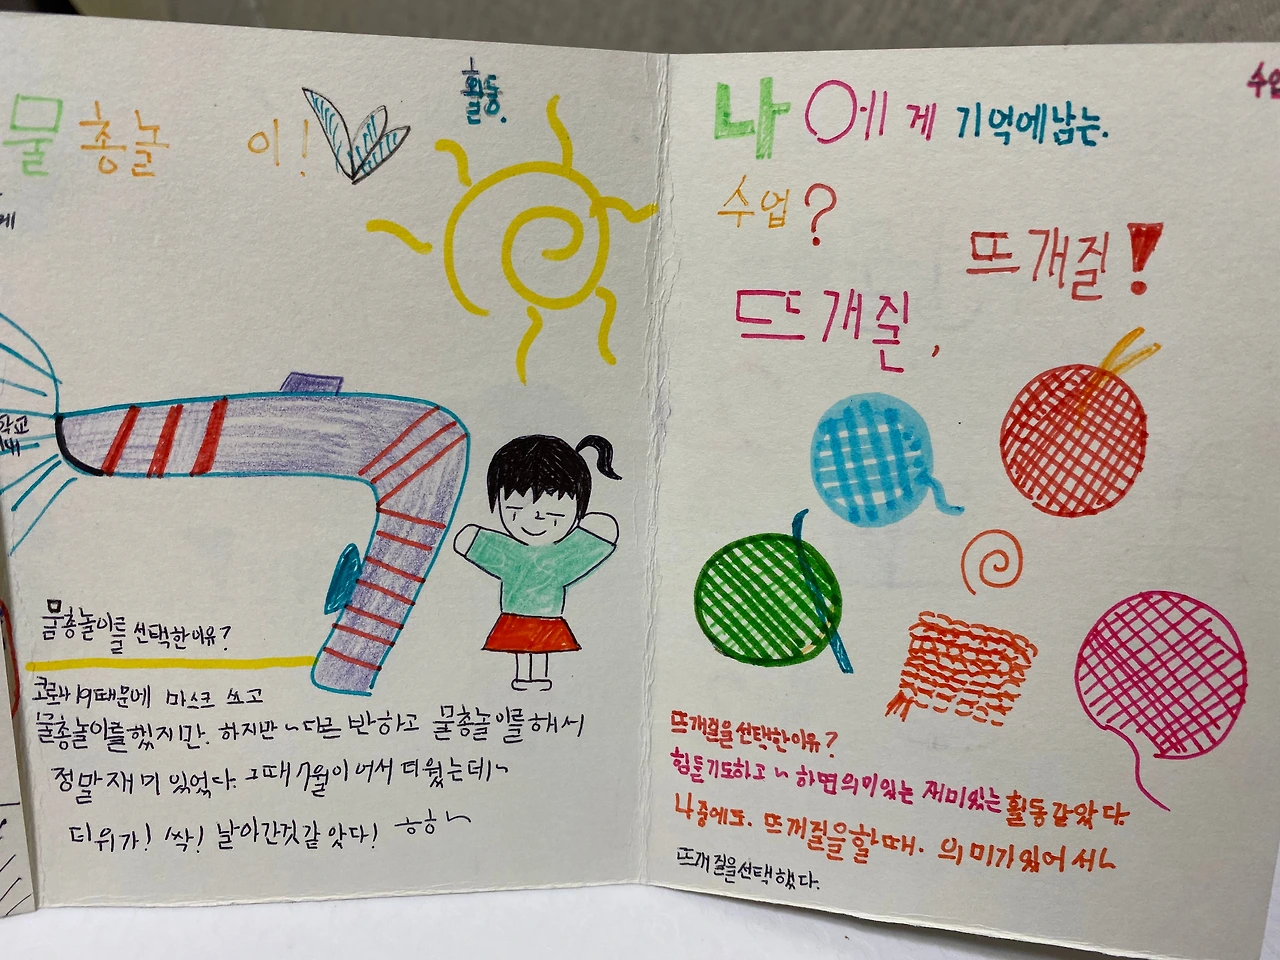 활동.
물총놀이!
물총놀이를 선택한이유?
코로나19때문에 마스크 쓰고
물총놀이를했지만. 하지만~다른 반하고 물총놀이를해서
정말재미있었다. 그때7월이어서 더웠는데~
더위가! 싹! 날아간것같았다! ㅎㅎ~
학교
수업
나에게 기억에남는.
수업?
뜨개질!
뜨개질,
뜨개질을선택한이유?
힘들기도하고~하면의미있는 재미있는활동같았다.
나중에도. 뜨개질을할때. 의미가있어서~
뜨개질을선택했다.